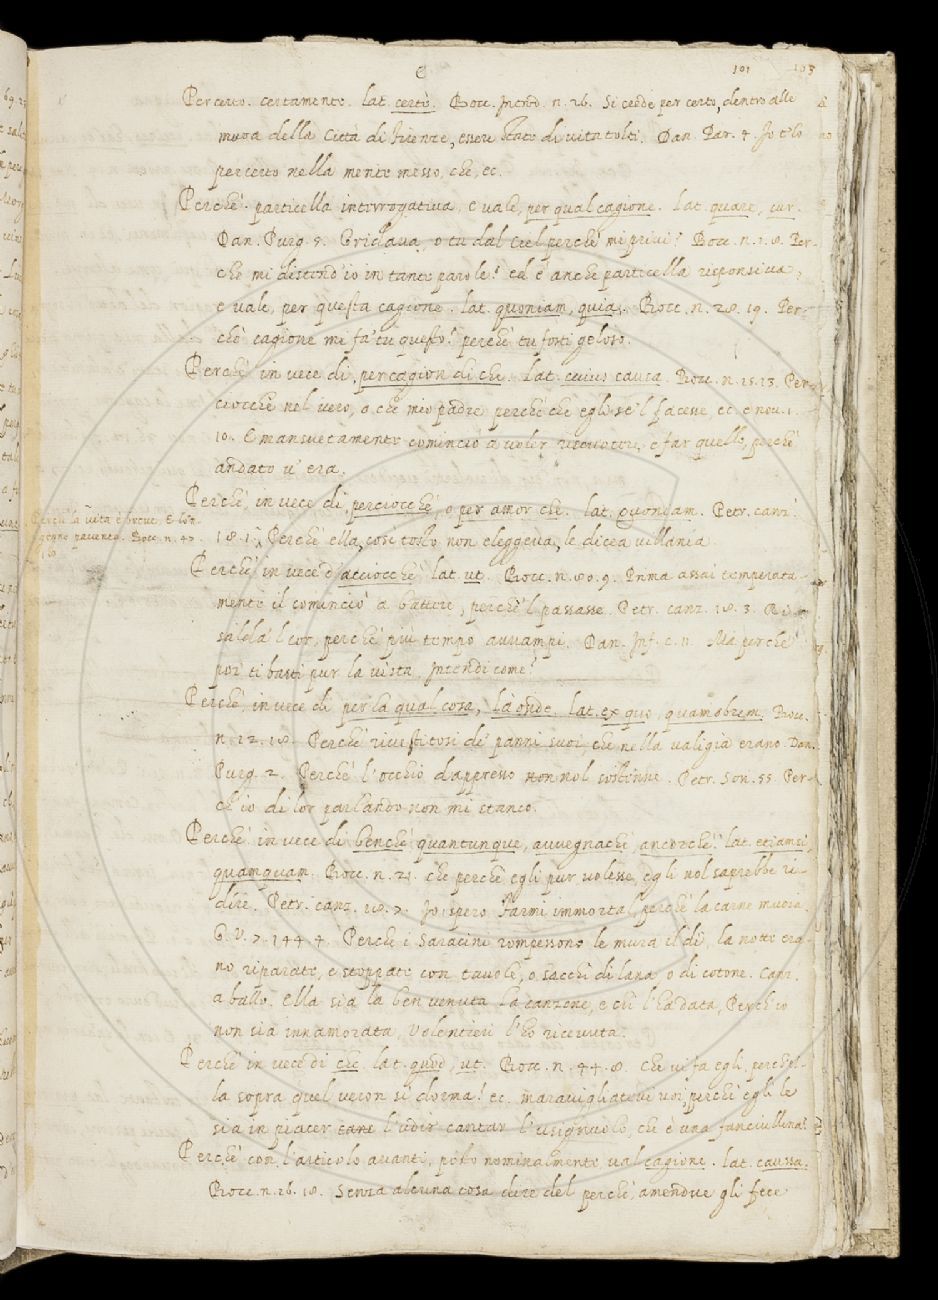 C 101 103
Per certo. certamente. lat. certò. Bocc. Introd. n. 26. Si crede per certo, dentro alle
mura della Città di Firenze, essere stato di vita tolti. Dan. Par. 4. Io t'ho
per certo nella mente messo, che, ec.
Perchè. particella interrogativa, e vale, per qual cagione. lat. quare, cur.
Dan. Purg. 5. Gridava, o tu dal Ciel perchè mi privi? Bocc. n. 1. 8. Per-
chè mi distend'io in tante parole? ed è anche particella responsiva,
e vale, per questa cagione. lat. quoniam, quia. Bocc. n. 28. 19. Per-
chè cagione mi fa' tu questo? perchè tu fosti geloso.
Perchè in vece di, per cagion di che. lat. cuius causa. Bocc. n. 15. 13. Per-
ciocchè nel vero, o che mio padre perchè che egli se'l facesse, ec. e nov. 1.
10. E mansuetamente cominciò a voler riscuotere, e far quello, perchè
andato v'era.
Perchè, in vece di, perciocchè, o per amor che. lat. Quoniam. Petr. canz.
18. 1. Perchè ella, così tosto non eleggeva, le dicea villania.
Perchè la vita è breve, E l'in-
gegno paventa. Bocc. n. 47.
Perchè in vece d'acciocchè lat. ut. Bocc. n. 80. 9. Prima assai temperata-
mente il cominciò a battere, perchè'l passasse. Petr. canz. 18. 3.
saldi 'l cor, perchè più tempo avvampi. Dan. Inf. c. 11. Ma perchè
poi ti basti pur la vista, Intendi come?
Perchè, in vece di per la qual cosa, là onde. lat. ex quo, quamobrem. Bocc.
n. 12. 18. Perchè rivestitosi de' panni suoi, che nella valigia erano. Dan.
Purg. 2. Perchè l'occhio dappresso non nol sostenne. Petr. Son. 55. Per-
ch'io di lor parlando non mi stanco.
Perchè in vece di benchè quantunque, avvegnachè, ancorchè. lat. etiamsi,
quamquam. Bocc. n. 21. che perchè egli pur volesse, egli nol saprebbe ri-
dire. Petr. canz. 28. 7. Io spero farmi immortal, perchè la carne muoia.
G. V. 7. 144. 4. Perchè i Saracini rompessono le mura il dì, la notte era-
no riparate, e stoppate con tavole, o sacchi di lana o di cotone. Canz.
a ballo. Ella sia la ben venuta la canzone, e chi l'ha data, Perch'io
non sia innamorata, volentieri l'ho ricevuta.
Perchè in vece di che lat. quod, ut. Bocc. n. 44. 8. che vi fa egli, perch'el-
la sopra quel veron si dorma? ec. maravigliatevi voi, perchè egli le
sia in piacer l'udir cantar l'usignuolo, che è una fanciullina?
Perchè con l'articolo avanti, posto nominalmente val cagione. lat. caussa.
Bocc. n. 26. 18. Senza alcuna cosa dire del perchè, amendue gli fece